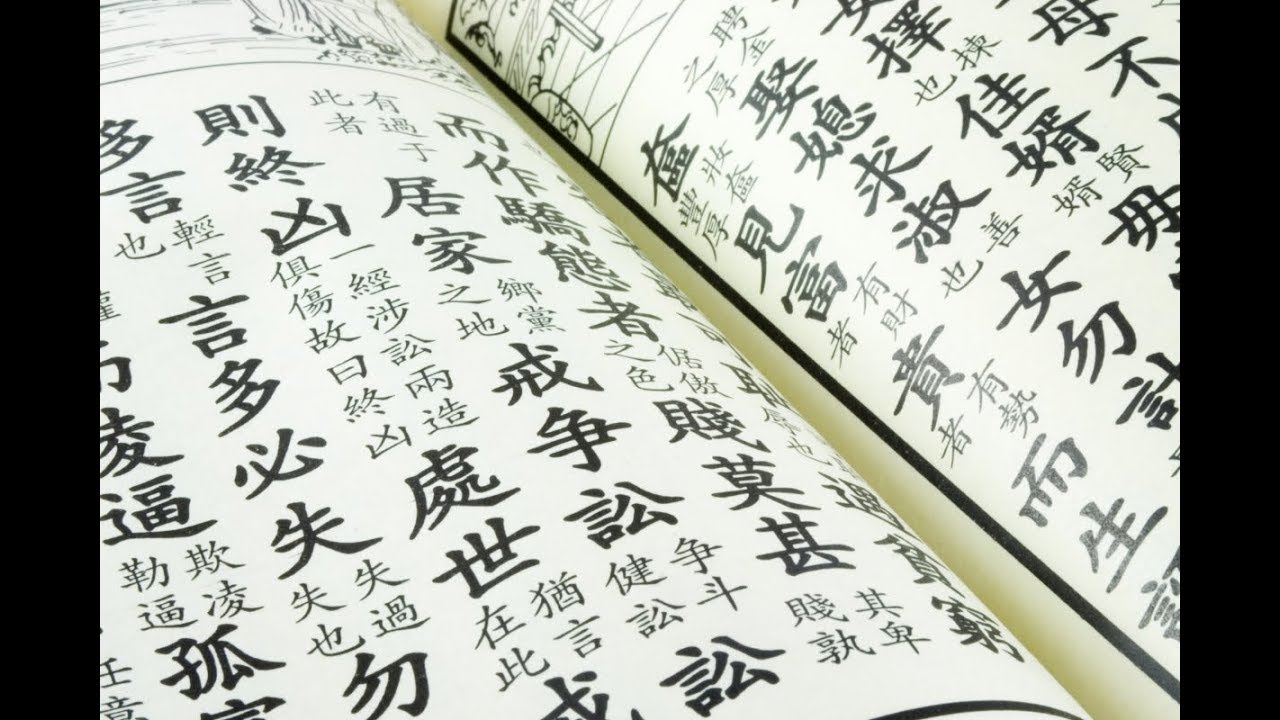 母不
女擇揀也佳婿賢婿毋
聘金之厚娶媳求淑善也女勿計
奩妝奩豐厚見富有財者貴有勢者而生
而作驕態者倨傲之色賤莫甚其卑賤孰
有過于此者居家鄉黨之地戒争訟争斗健訟訟
則終凶一經涉訟兩造俱傷故曰終凶處世猶言在此戒
多言輕言也言多必失失過失也勿
凌逼欺凌勒逼孤寡
任意